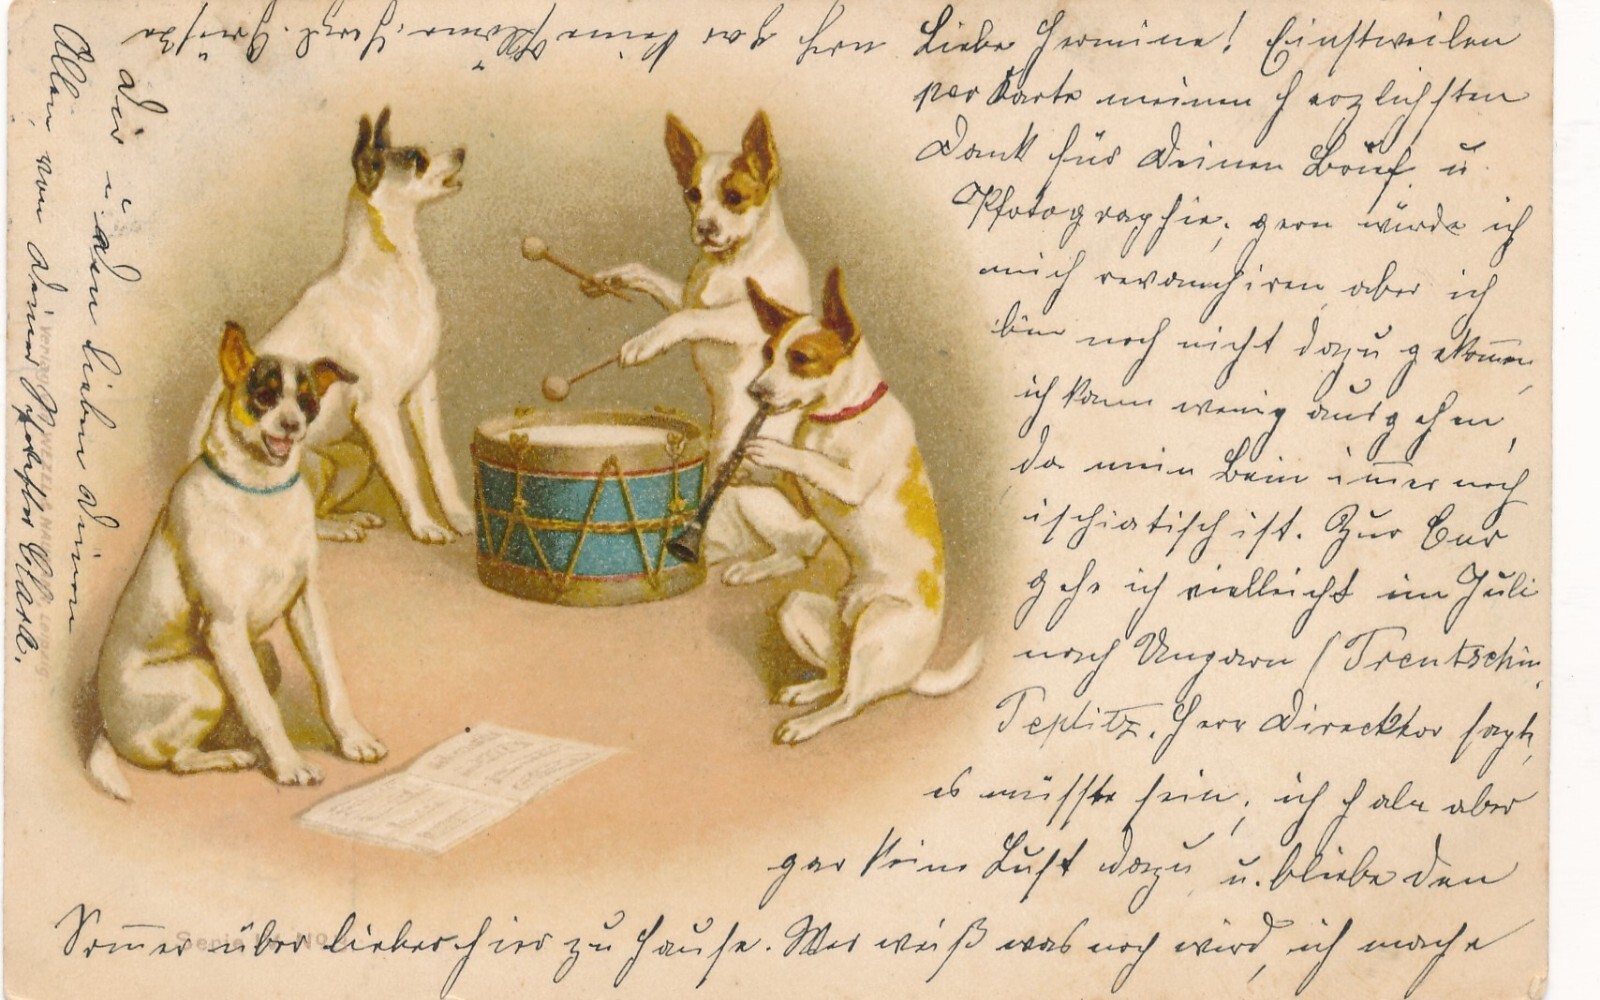 Liebe Hermine! Einstweilen
per Karte meinen herzlichsten
Dank für Deinen Brief u
Photographie, gern würde ich
mich revanchiren, aber ich
bin noch nicht dazu gekom̅en,
ich kann wenig ausgehen,
da mein Bein im̅er noch
ischiatisch ist. Zur Cur
gehe ich vielleicht im Juli
nach Ungarn (Trentschin,
Teplitz. Herr Direcktor sagt,
es müsste sein, ich habe aber
gar keine Lust dazu u. bliebe den
Som̅er über lieber hier zu Hause. Wer weiß was noch wird, ich mache
noch gar keine Pläne. Herzl. Grüße
Dir u den lieben Deinen
Allen, von Deiner